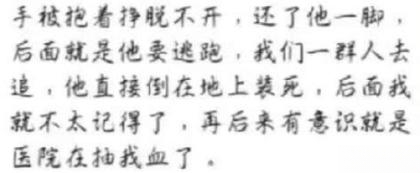 手被抱着挣脱不开，还了他一脚，
后面就是他要逃跑，我们一群人去
追，他直接倒在地上装死，后面我
就不太记得了，再后来有意识就是
医院在抽我血了。